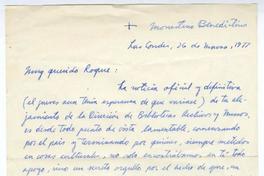 + Monasterio Benedictino
Las Condes, 26 de Marzo, 1977
Muy querido Roque:
La noticia oficial y definitiva
(el jueves aun tenía esperanza de que variase) de tu ale-
jamiento de la Dirección de Bibliotecas Archivos y Museos,
es desde todo punto de vista, lamentable, comenzando
por el país y terminando por quienes, siempre metidos
en cosas culturales, no solo encontrábamos en ti todo
apoyo, sino un cierto orgullo por el hecho de que, un